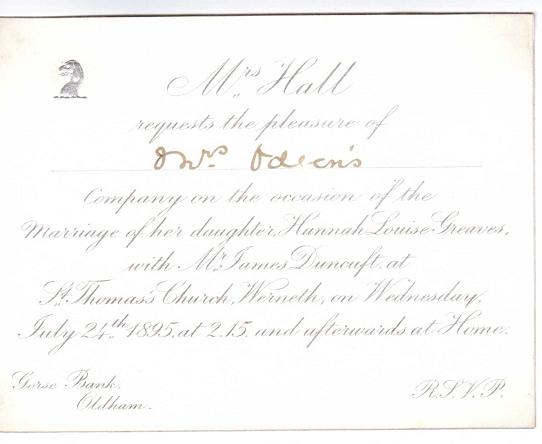 Mrs Hall
requests the pleasure of
Mrs
Company on the occasion of the
Marriage of her daughter, Hannah Louise Greaves,
with Mr. James Duncuft. at
St. Thomas's Church, Werneth, on Wednesday,
July 24th 1895, at 2.15. and afterwards at Home.
Gorse Bank.
Oldham.
R.S.V.P.